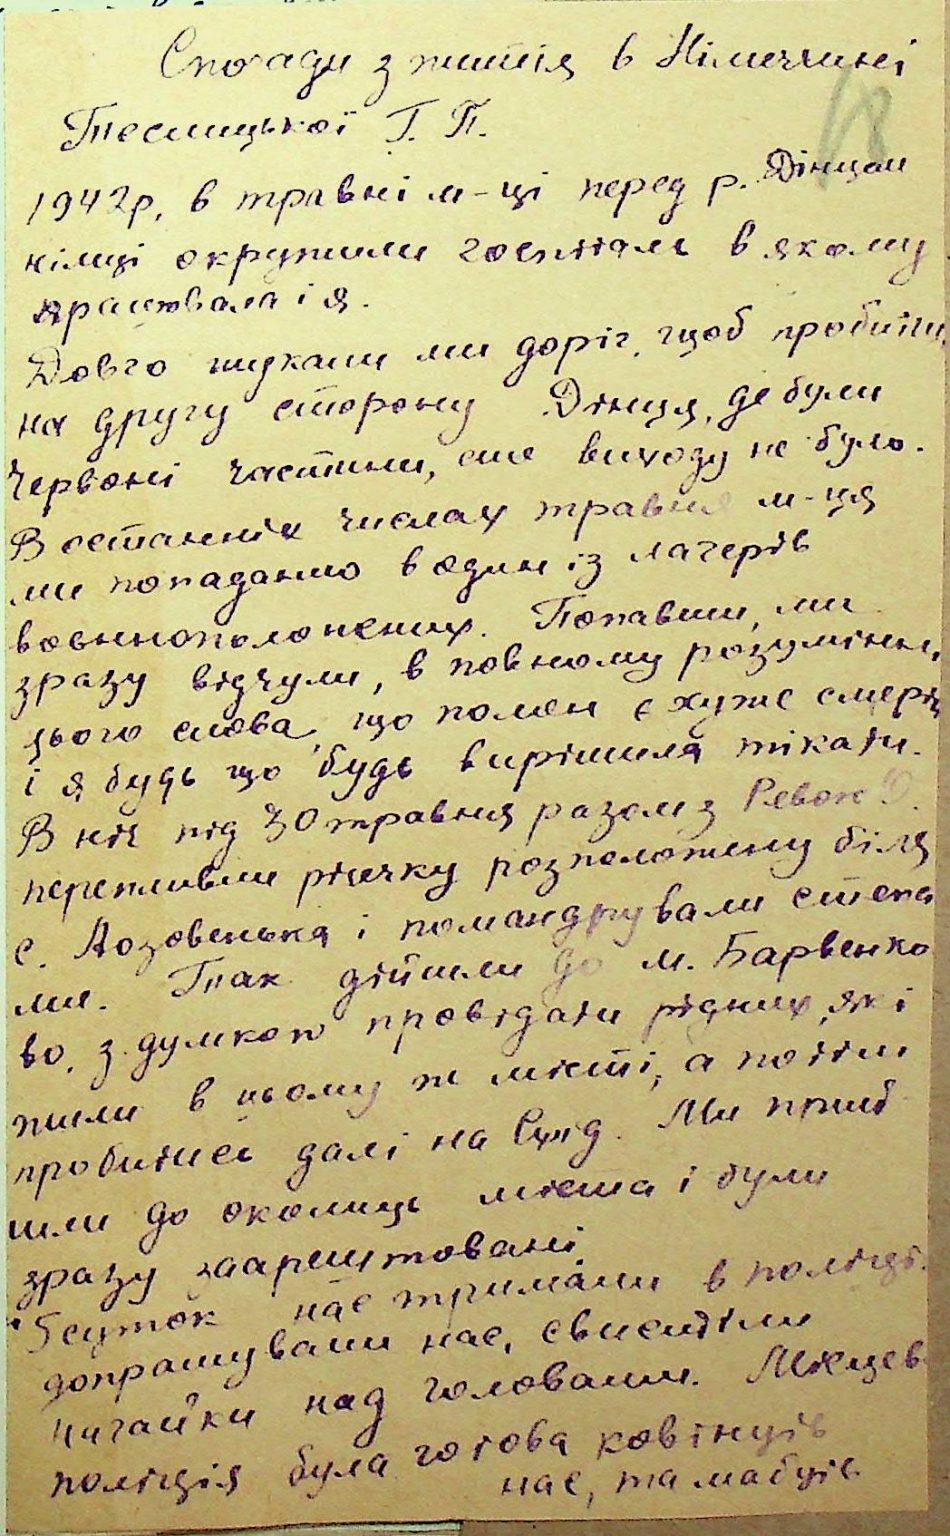 Спогади з життя в Німеччині
18
Теслицької Г. П.
1942р. в травні м-ці перед р. Дінцем
німці окружили госпіталь в якому
працювала і я.
Довго шукали ми доріг, щоб пробитись
на другу сторону Дінця, де були
Червоні частини, але виходу не було.
В останніх числах травня м-ця
ми попадаємо в один із лагерів
военнополонених. Попавши, ми
зразу відчули, в повному розумінні
цього слова, що полон є хуже смерті
і я будь що будь вирішила тікати.
В ніч під 30 травня разом з
перепливши річечку розположену біля
с. Лозовенька і помандрували степа
ми. Так дійшли до м. Барвенко
во, з думкою провідати рідних, які
жили в цьому ж місті, а потім
пробитись далі на Схід. Ми прий
шли до околиць міста і були
зразу заарештовані.
5 суток нас тримали в поліції.
допрашували нас, свистіли
нагайки над головами. Місцев
поліція була готова
нас, та мабуть